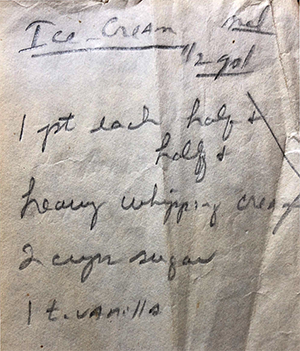 Ice Cream
1/2 gal
1 pt each half &
half &
heavy whipping cream
2 cups sugar
1 t. vanilla